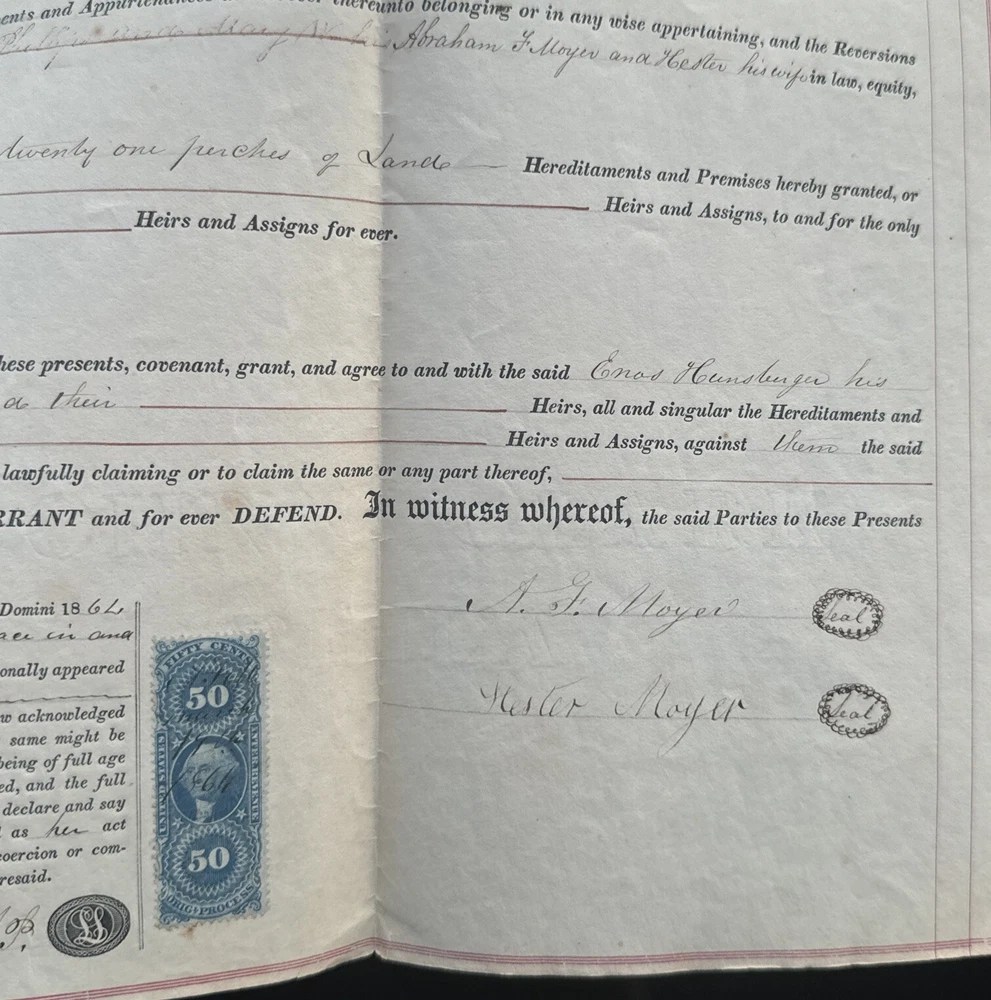 ents and Appurtenances thereunto belonging or in any wise appertaining, and the Reversions
Abraham F Moyer and Hester his wife in law, equity,
twenty one perches of Land Hereditaments and Premises hereby granted, or
Heirs and Assigns, to and for the only
Heirs and Assigns for ever.
hese presents, covenant, grant, and agree to and with the said Enos Hunsberger his
d their Heirs, all and singular the Hereditaments and
Heirs and Assigns, against them the said
lawfully claiming or to claim the same or any part thereof,
RRANT and for ever DEFEND. In witness whereof, the said Parties to these Presents
A. F. Moyer Seal
Hester Moyer Seal
Domini 1864
ace in and
onally appeared
w acknowledged
same might be
being of full age
ed, and the full
declare and say
as her act
coercion or com-
resaid.
J.P. LS
FIFTY CENTS
50
UNITED STATES
INTER. REVENUE
1864
50
ORIG. PROCESS